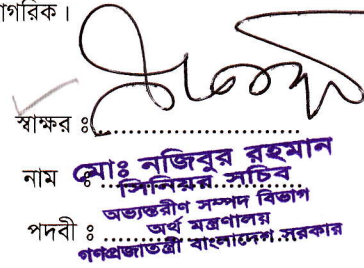 নাগরিক।
স্বাক্ষর ঃ
নাম ঃ মোঃ নজিবুর রহমান
সিনিয়র সচিব
পদবী ঃ অভ্যন্তরীণ সম্পদ বিভাগ
অর্থ মন্ত্রণালয়
গণপ্রজাতন্ত্রী বাংলাদেশ সরকার